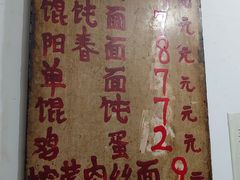 馄饨面 7元
阳春面 8元
单面 7元
馄饨 7元
鸡蛋 2元
菜肉丝面 9元